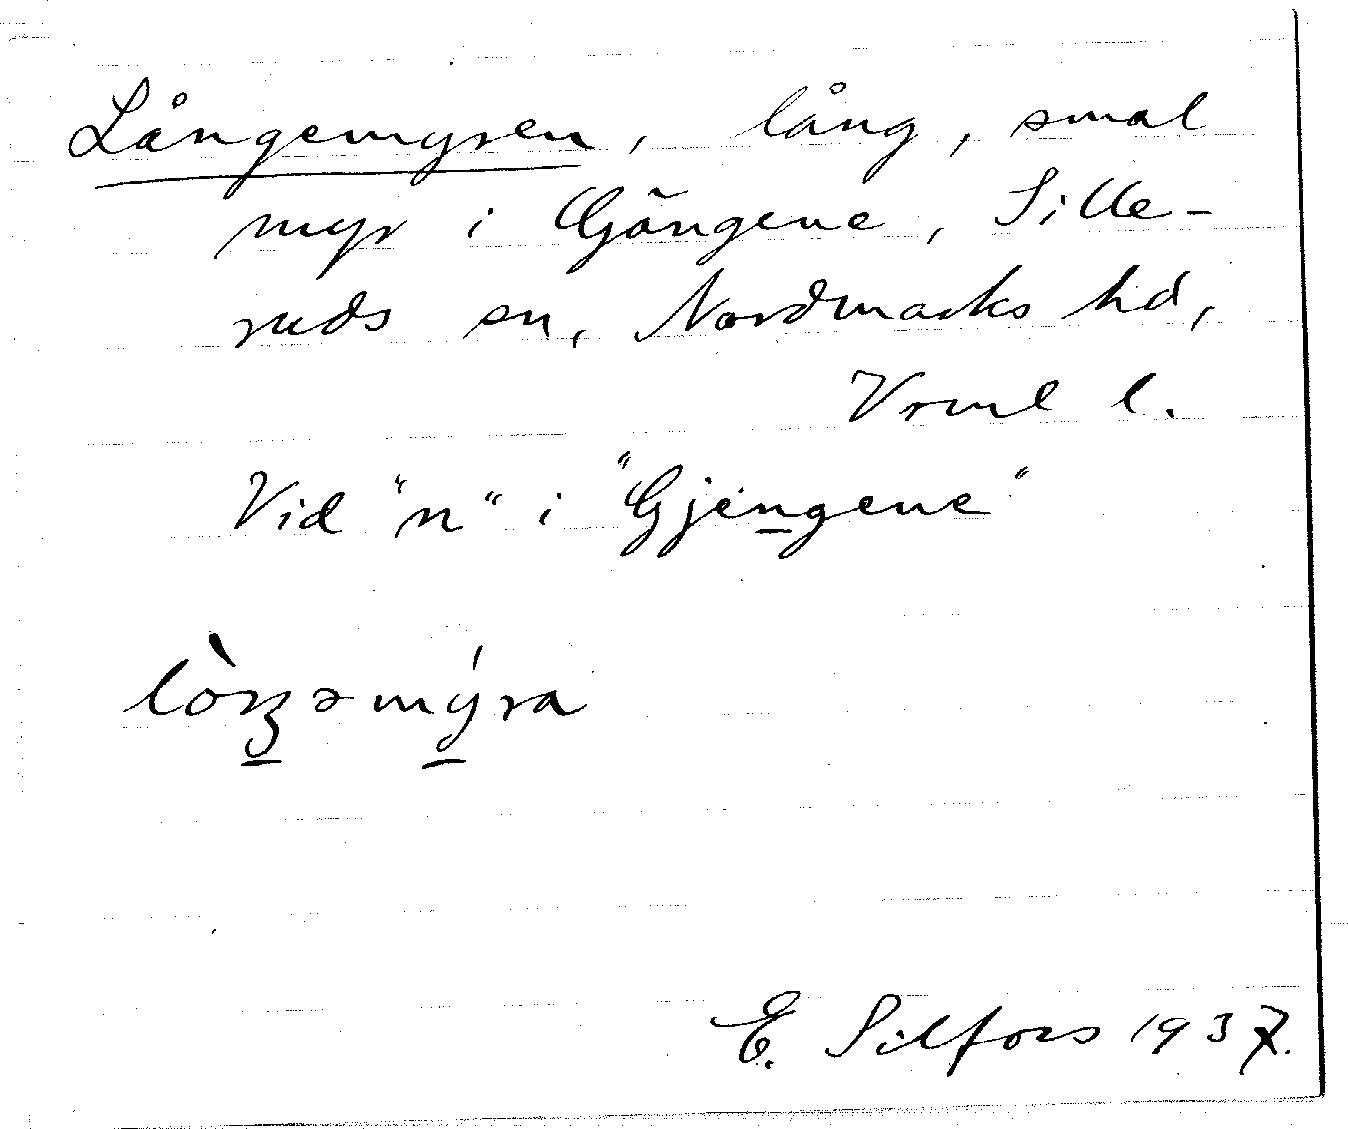 Långemyren, lång, smal
myr i Gängene, Sille-
ruds sn, Nordmarks hd,
Vrml l.
Vid "n" i "Gjengene"
lòŋəmýra
E. Silfors 1937.